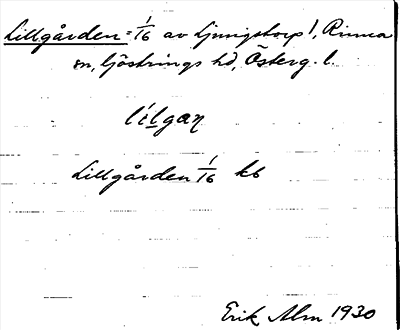 Lillgården = 1/16 av Ljungstorp 1, Rinna
sn, Göstrings hd, Österg. l.
lílgaɳ
Lillgården 1/16 kb
Erik Alm 1930